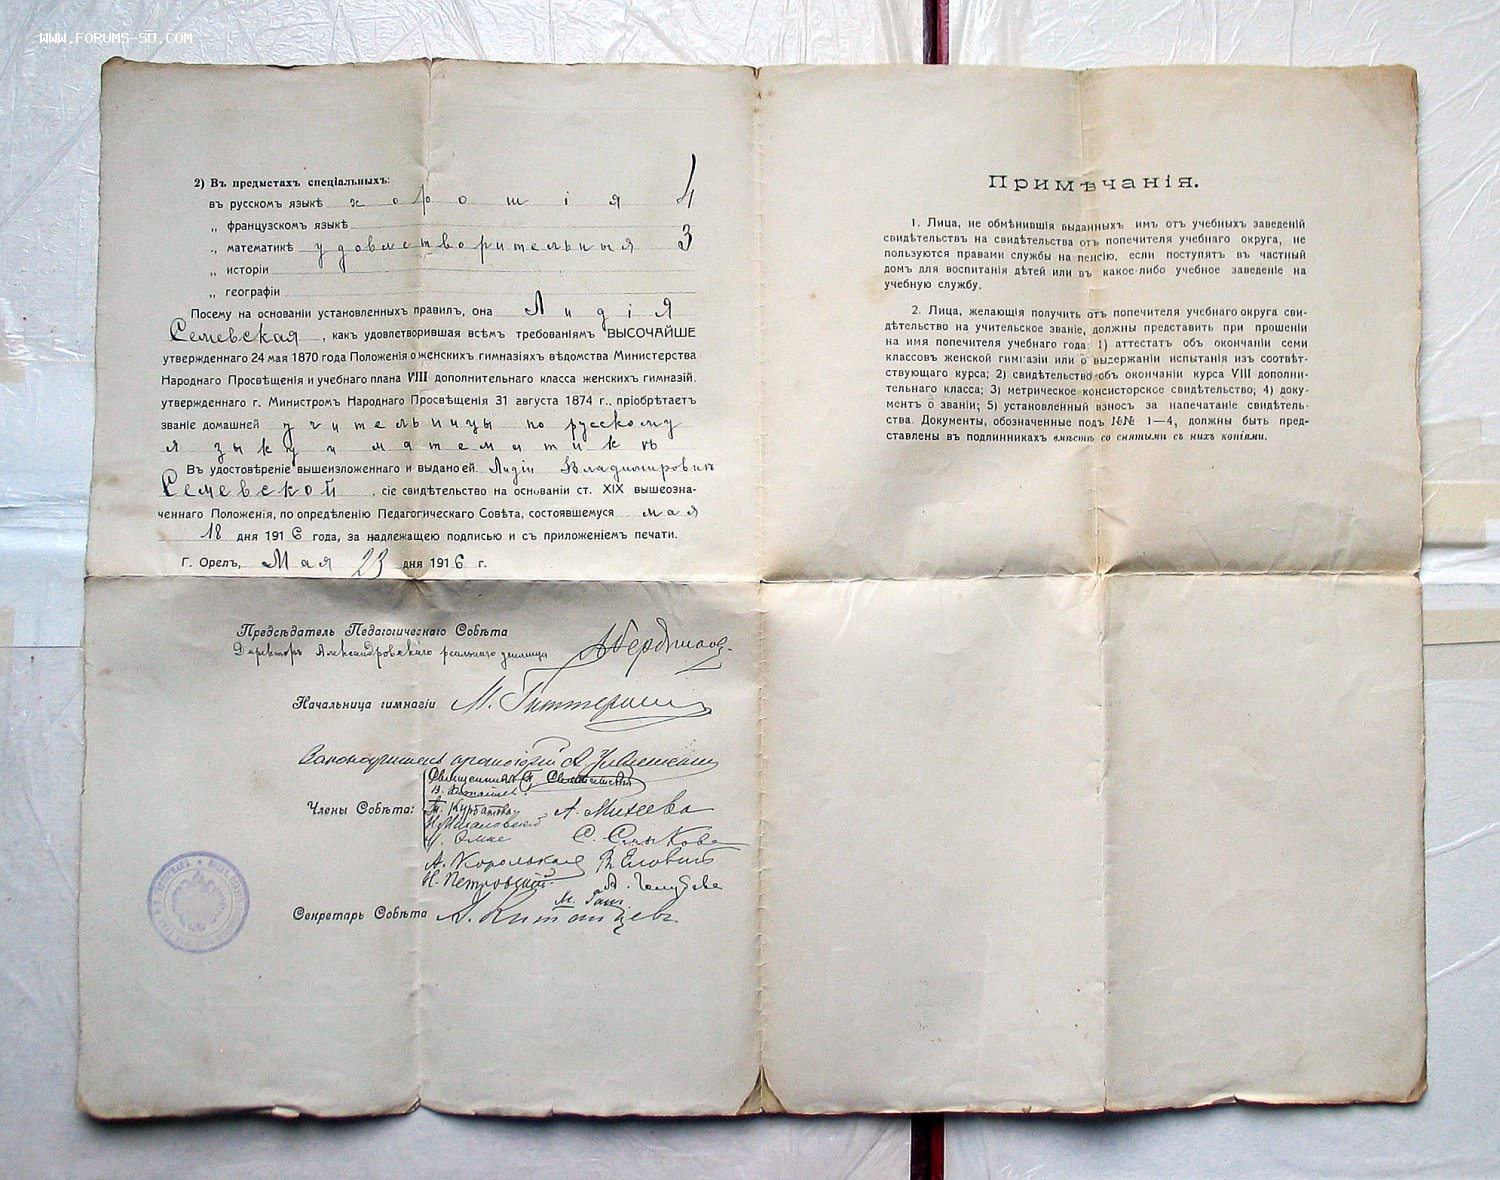 WWW.FORUMS-SU.COM
2) Въ предметахъ спеціальныхъ:
въ русскомъ языкѣ хорошія 4
„ французскомъ языкѣ
„ математикѣ удовлетворительныя 3
„ исторіи
„ географіи
Посему на основаніи установленныхъ правилъ, она Лидія
Семевская, какъ удовлетворившая всѣмъ требованіямъ ВЫСОЧАЙШЕ
утвержденнаго 24 мая 1870 года Положенія о женскихъ гимназіяхъ вѣдомства Министерства
Народнаго Просвѣщенія и учебнаго плана VIII дополнительнаго класса женскихъ гимназій.
утвержденнаго г. Министромъ Народнаго Просвѣщенія 31 августа 1874 г., пріобрѣтаетъ
званіе домашней учительницы по русскому
языку и математикѣ
Въ удостовѣреніе вышеизложеннаго и выдано ей, Лидіи Владимировнѣ
Семевской, сіе свидѣтельство на основаніи ст. XIX вышеозна-
ченнаго Положенія, по опредѣленію Педагогическаго Совѣта, состоявшемуся мая
18 дня 1916 года, за надлежащею подписью и съ приложеніемъ печати.
Г. Орелъ, Мая 23 дня 1916 г.
Предсѣдатель Педагогическаго Совѣта
Директоръ Александровскаго реальнаго училища
Начальница гимназіи М.
Законоучитель протоіерей А.
Священникъ
Члены Совѣта: Курбатова А. Михеева
С. Смыкова
А.
Н. Петровскій А. Голубева
М.
Секретарь Совѣта А. Китайцевъ
Примѣчанія.
1. Лица, не обмѣнившія выданныхъ имъ отъ учебныхъ заведеній
свидѣтельствъ на свидѣтельства отъ попечителя учебнаго округа, не
пользуются правами службы на пенсію, если поступятъ въ частный
домъ для воспитанія дѣтей или въ какое-либо учебное заведеніе на
учебную службу.
2. Лица, желающія получить отъ попечителя учебнаго округа сви-
дѣтельство на учительское званіе, должны представить при прошеніи
на имя попечителя учебнаго года: 1) аттестатъ объ окончаніи семи
классовъ женской гимназіи или о выдержаніи испытанія изъ соотвѣт-
ствующаго курса; 2) свидѣтельство объ окончаніи курса VIII дополни-
тельнаго класса; 3) метрическое консисторское свидѣтельство; 4) доку-
ментъ о званіи; 5) установленный взносъ за напечатаніе свидѣтель-
ства. Документы, обозначенные подъ №№ 1—4, должны быть пред-
ставлены въ подлинникахъ вмѣстѣ со снятыми съ нихъ копіями.